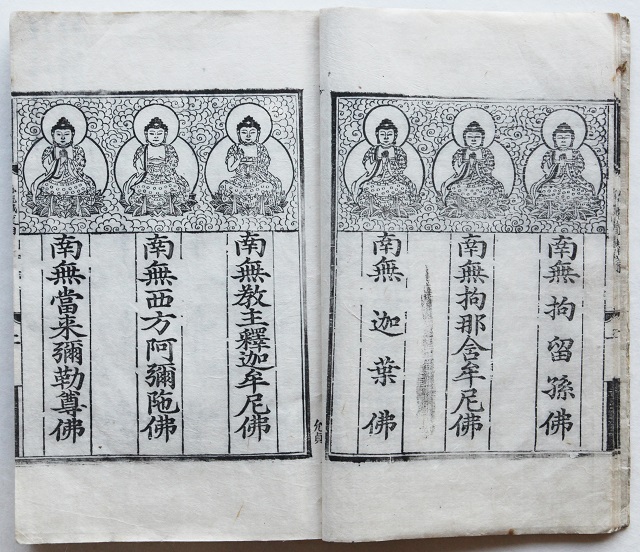 南無拘留孫佛
南無拘那舍牟尼佛
南無迦葉佛
南無教主釋迦牟尼佛
南無西方阿彌陁佛
南無當来彌勒尊佛
允貞